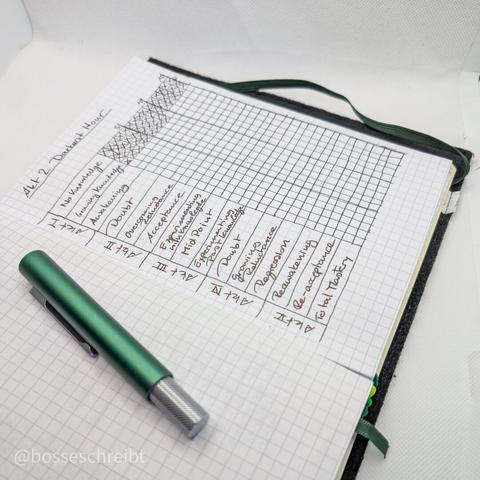 Akt 2 Darkest Hour
No Knowledge
Growing Knowledge
Awakening
Doubt
Overcoming
Reluctance
Acceptance
Experimenting
with Knowledge
Mid Point
Experimenting
Post Knowledge
Doubt
Growing
Reluctance
Regression
Reawakening
Re-acceptance
Total Mastery
Akt I
Akt II
Akt III
Akt IV
Akt V
@bosseschreibt